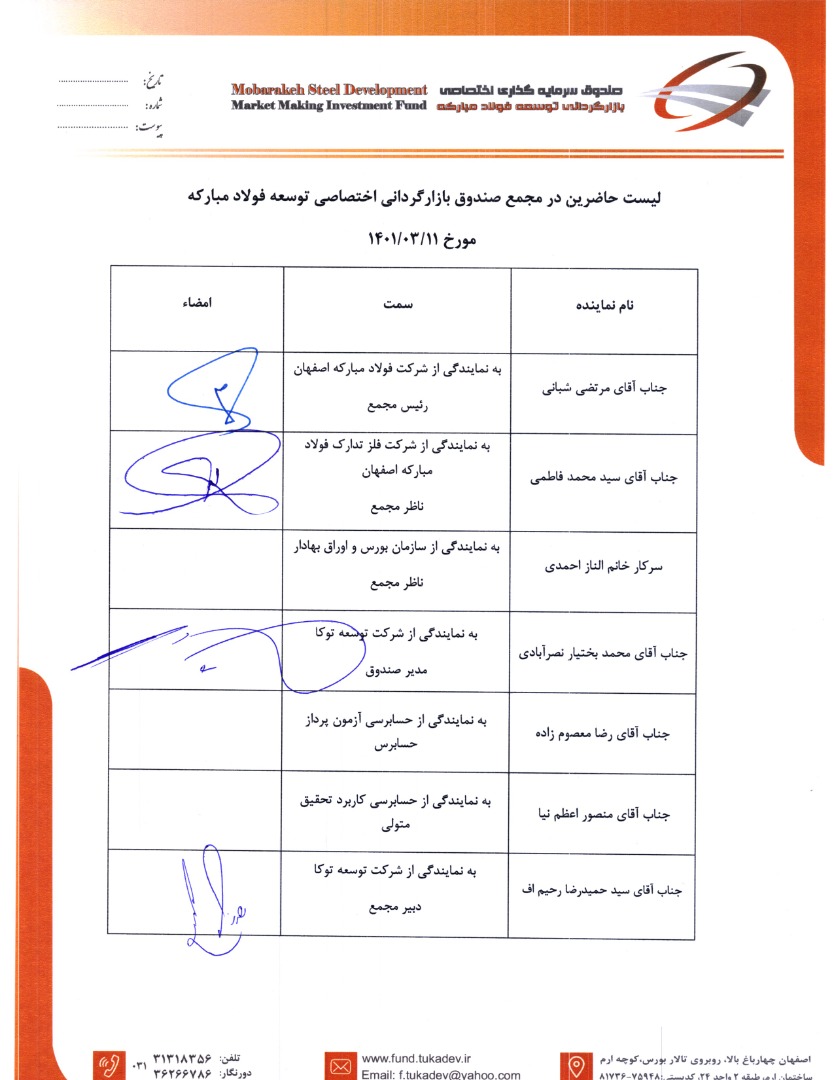 تاریخ:
شماره:
پیوست:
Mobarakeh Steel Development
Market Making Investment Fund
صندوق سرمایه گذاری اختصاصی
بازارگردانی توسعه فولاد مبارکه
لیست حاضرین در مجمع صندوق بازارگردانی اختصاصی توسعه فولاد مبارکه
مورخ ۱۴۰۱/۰۳/۱۱
نام نماینده
سمت
امضاء
جناب آقای مرتضی شبانی
به نمایندگی از شرکت فولاد مبارکه اصفهان
رئیس مجمع
جناب آقای سید محمد فاطمی
به نمایندگی از شرکت فلز تدارک فولاد
مبارکه اصفهان
ناظر مجمع
سرکار خانم الناز احمدی
به نمایندگی از سازمان بورس و اوراق بهادار
ناظر مجمع
جناب آقای محمد بختیار نصرآبادی
به نمایندگی از شرکت توسعه توکا
مدیر صندوق
جناب آقای رضا معصوم زاده
به نمایندگی از حسابرسی آزمون پرداز
حسابرس
جناب آقای منصور اعظم نیا
به نمایندگی از حسابرسی کاربرد تحقیق
متولی
جناب آقای سید حمیدرضا رحیم اف
به نمایندگی از شرکت توسعه توکا
دبیر مجمع
اصفهان چهارباغ بالا، روبروی تالار بورس،کوچه ارم
ساختمان ارم، طبقه ۲ واحد ۲۴، کدپستی:۷۵۹۴۸-۸۱۷۳۶
www.fund.tukadev.ir
Email: f.tukadev@yahoo.com
تلفن: ۳۱۳۱۸۳۵۶
۰۳۱
دورنگار: ۳۶۲۶۶۷۸۶